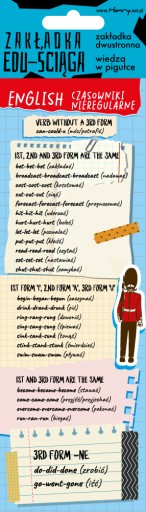 www.Henry.pl
ZAKŁADKA
EDU-ŚCIĄGA
zakładka
dwustronna
wiedza
w pigułce
ENGLISH
CZASOWNIKI
NIEREGULARNE
VERB WITHOUT A 3RD FORM
can-could-x (móc/potrafić)
1ST, 2ND AND 3RD FORM ARE THE SAME
bet-bet-bet (zakładać)
broadcast-broadcast-broadcast (nadawać)
cost-cost-cost (kosztować)
cut-cut-cut (ciąć)
forecast-forecast-forecast (prognozować)
hit-hit-hit (uderzać)
hurt-hurt-hurt (boleć)
let-let-let (pozwalać)
put-put-put (kłaść)
read-read-read (czytać)
set-set-set (nastawiać)
shut-shut-shut (zamykać)
1ST FORM 'I', 2ND FORM 'A', 3RD FORM 'U'
begin-began-begun (zaczynać)
drink-drank-drunk (pić)
ring-rang-rung (dzwonić)
sing-sang-sung (śpiewać)
sink-sank-sunk (tonąć)
stink-stank-stunk (śmierdzieć)
swim-swam-swum (pływać)
1ST AND 3RD FORM ARE THE SAME
become-became-become (stawać)
come-came-come (przyjść/przyjechać)
overcome-overcame-overcome (pokonać)
run-ran-run (biegać)
3RD FORM –NE
do-did-done (zrobić)
go-went-gone (iść)